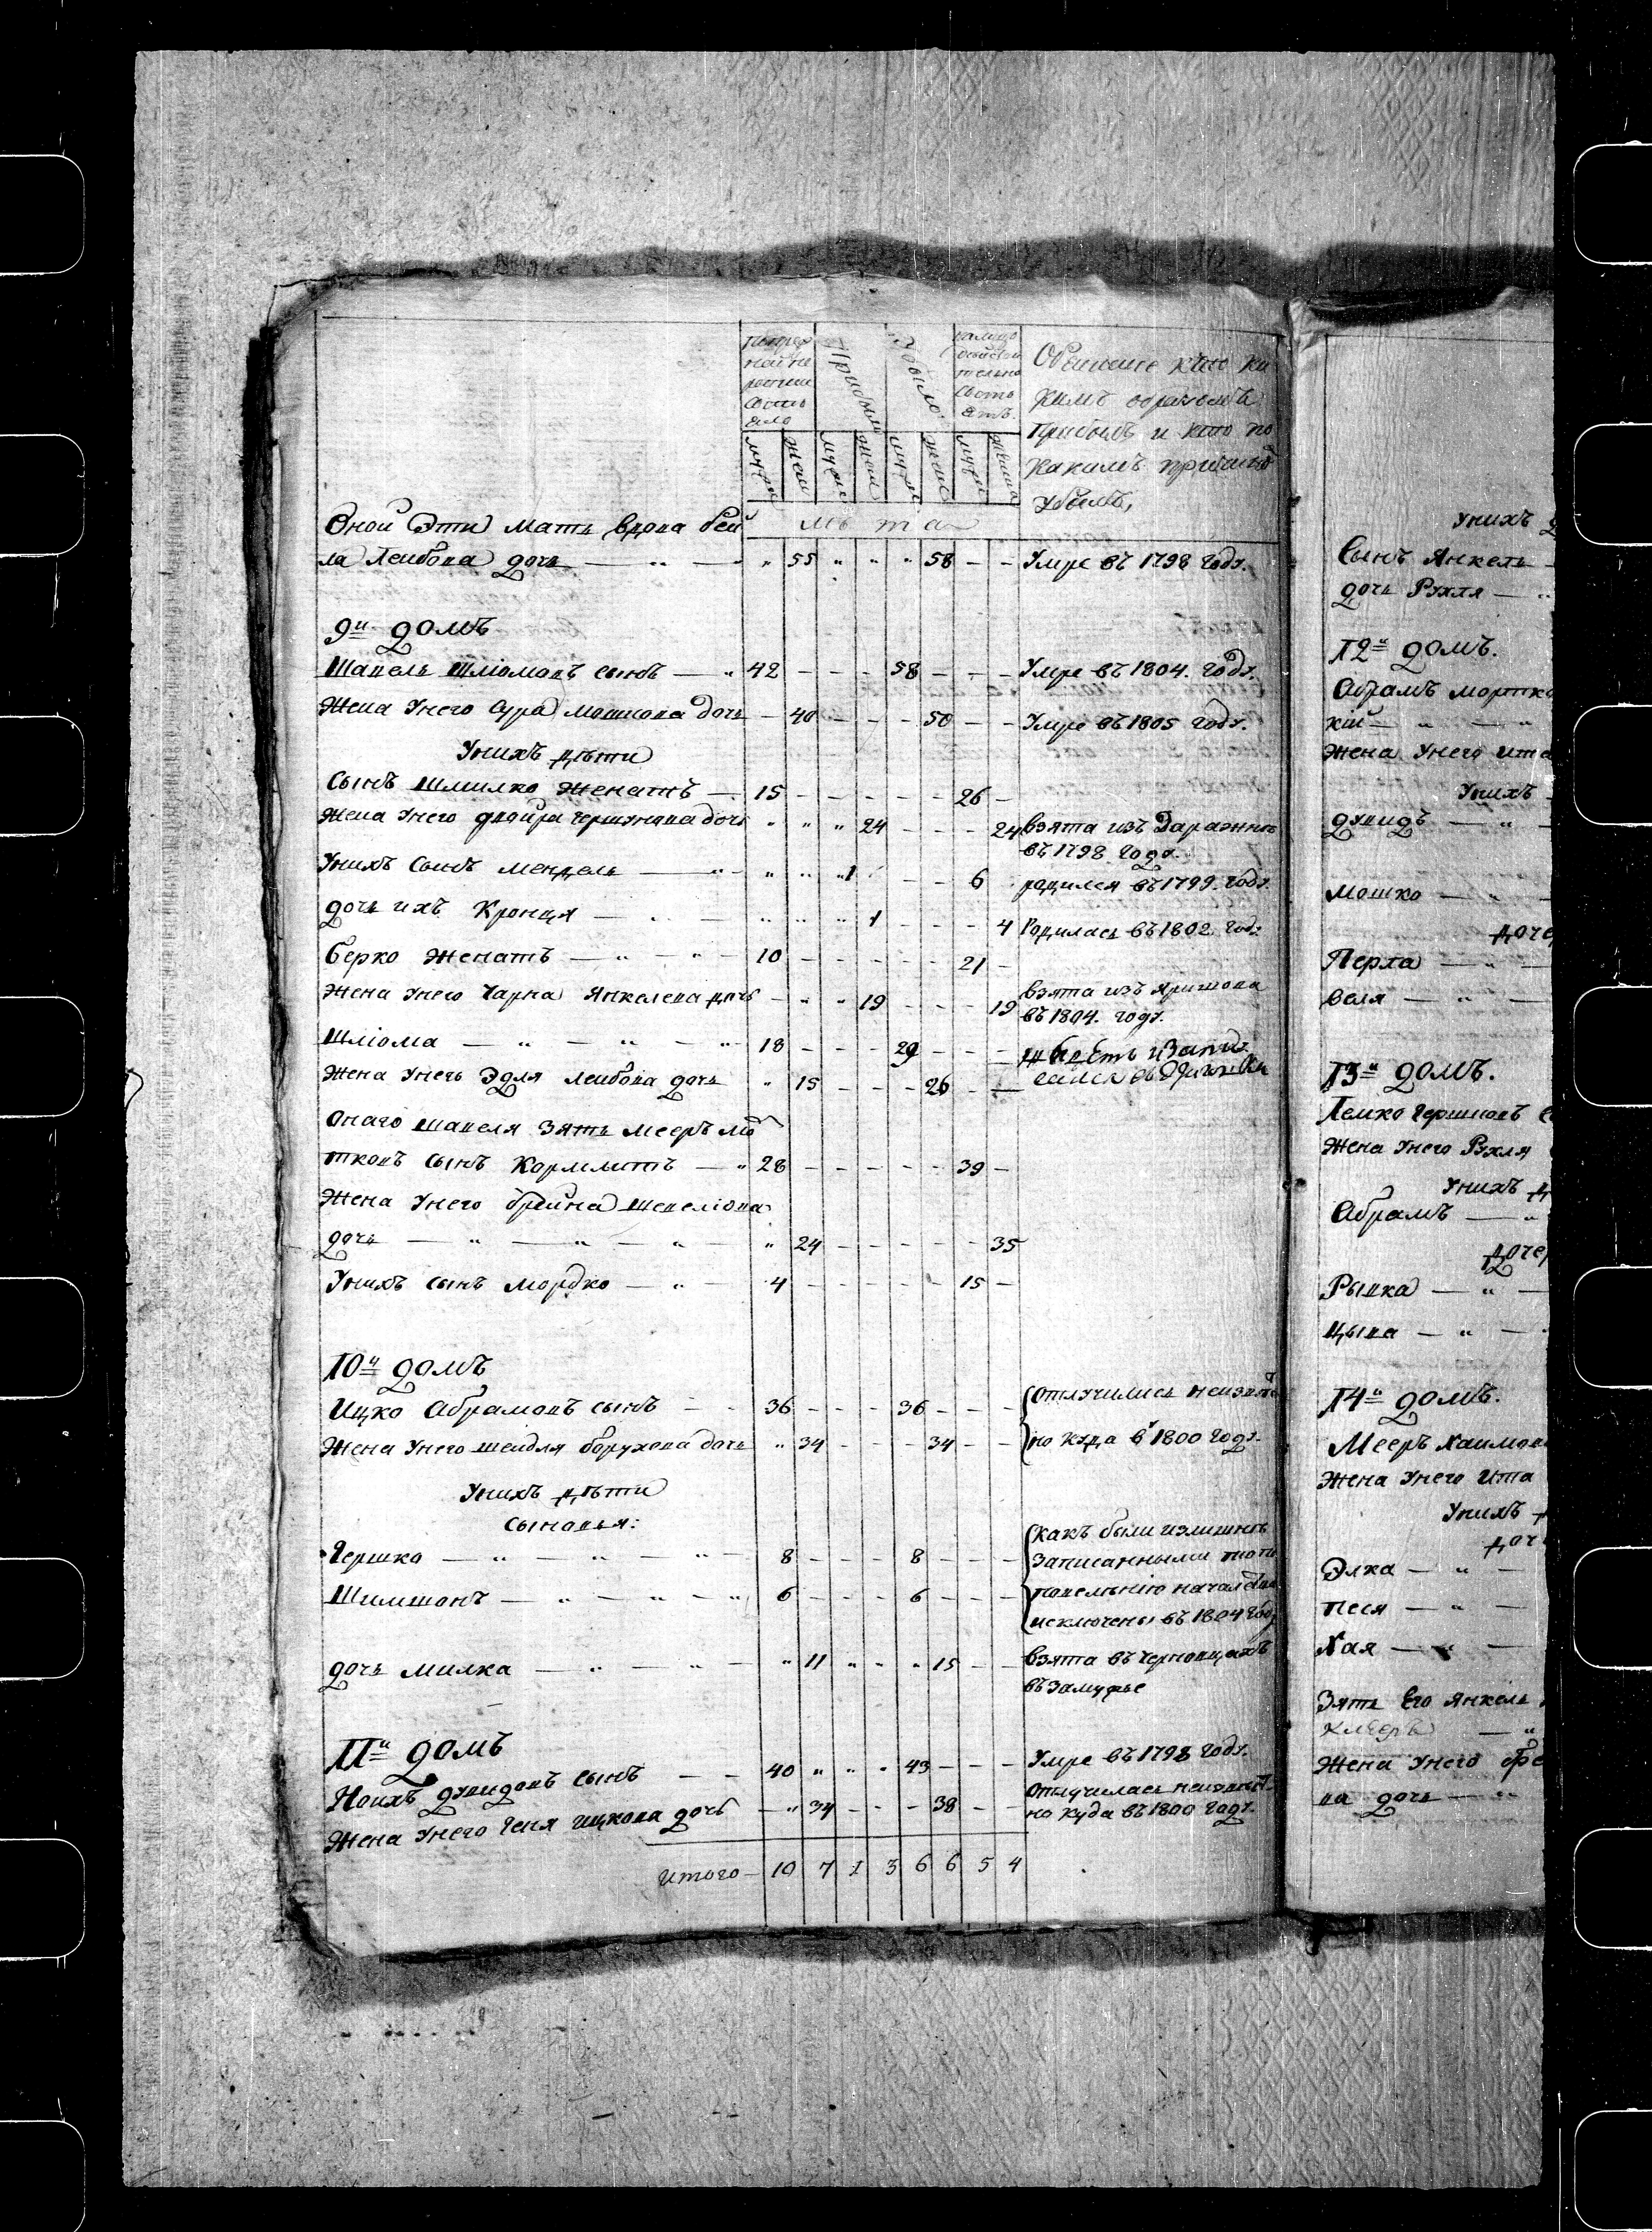 Прибыло
Объяснение кто ка
кимъ образомъ
прибылъ и кто по
какимъ причинамъ
убылъ,
муж жен муж жен муж жен муж жен
лѣта
Оной Эти мать вдова беи
ла Леибова дочь — „ — „ 55 „ „ „ 58 — — Умре въ 1798 году.
9й домъ
Шапель Шліомовъ сынъ — „ 42 — — — 58 — — — Умре въ 1804. году.
Жена Унего Сура Мошкова дочь — 40 — — — 50 — — Умре въ 1805 году.
Унихъ дѣти
Сынъ Шмилко женатъ — 15 — — — — — 26 —
Жена Унего двойра Гершунова дочь „ „ „ 24 — — — 24 взята изъ
въ 1798 году.
Унихъ Сынъ Мендель — „ — „ „ „ 1 — — — 6 родился въ 1799. году.
дочь ихъ Кронця — „ — „ „ „ 1 — — — 4 Родилась въ 1802 году
Берко женатъ — „ — „ — 10 — — — — — 21 —
Жена Унего Чарна Янкелева дочь — „ „ 19 — — — 19 взята изъ Яришова
въ 1804. году.
Шліома — „ — „ — „ 18 — — — 29 — — —
Жена Унего Эдля Леибова дочь „ 15 — — — 26 — —
Онаго шапеля Зять Мееръ мо
тковъ сынъ Кормлитъ — „ 28 — — — — — 39 —
Жена Унего брейна шепеліова
дочь — „ — „ — „ — „ 24 — — — — — 35
Унихъ сынъ Мордко — „ — 4 — — — — — 15 —
10й домъ
Ицко Абрамовъ сынъ — — 36 — — — 36 — — — отлучились неизвѣст
Жена Унего шейдля борухова дочь „ 34 — — — 34 — — но куда в 1800 году.
Унихъ дѣти
сыновья:
Гершко — „ — „ — „ — 8 — — — 8 — — — какъ были излишнѣ
записанными то по
Шимшонъ — „ — „ — „ 6 — — — 6 — — — повелѣнію начальства
исключены въ 1804 году
дочь Милка — „ — „ — „ 11 „ „ „ 15 — — взята въ Черновцахъ
въ замужье
11й домъ
Ноихъ дувидовъ сынъ — — 40 „ „ „ 43 — — — Умре въ 1798 году.
Жена Унего Геня Ицкова дочь — „ 34 — — — 38 — — отлучилась неизвѣст
но куда въ 1800 году.
Итого — 10 7 1 3 6 6 5 4
Унихъ
Сынъ Янкель —
дочь Рухля — „
12й домъ.
Абрамъ мортко
кій — „ — „
Жена Унего ита
Унихъ
дувидъ — „
Мошко — „ —
доче
Перла — „ —
беля — „ —
13й домъ.
Лемко Гершковъ
Жена Унего Рухля
Унихъ д
Абрамъ — „
дочер
Рывка — „ —
Цыпа — „ —
14й домъ.
Мееръ Хаимов
Жена Унего Ита
Унихъ
доч
Элка — „ —
Песя — „ —
Хая — „ —
Зять Его Янкель
Жена Унего Фе
ва дочь — „